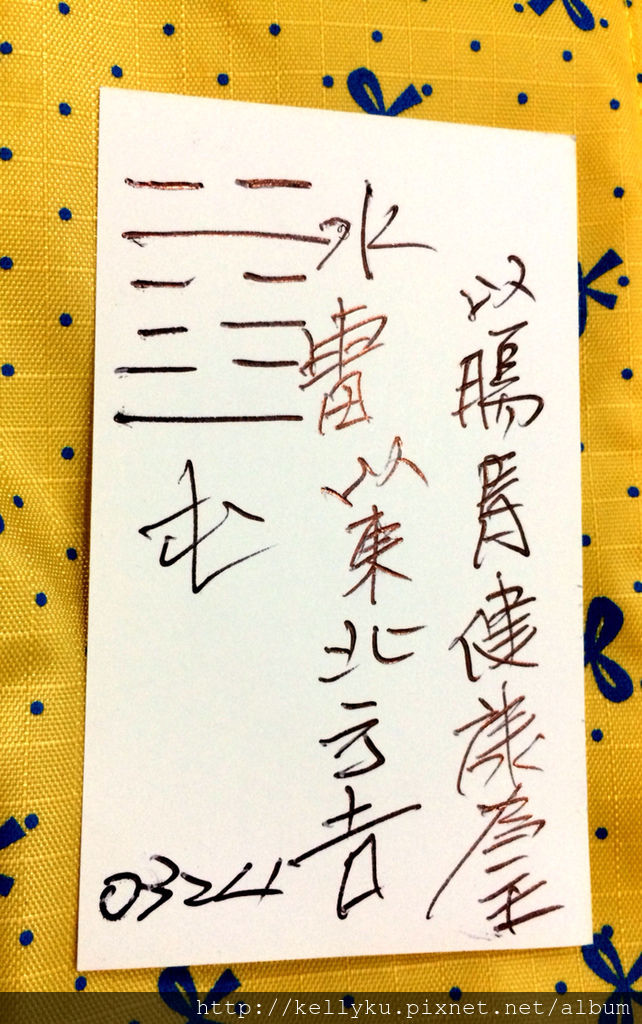 水雷
屯
以東北方吉
以腸胃健康為主
0324
http://kellyku.pixnet.net/album